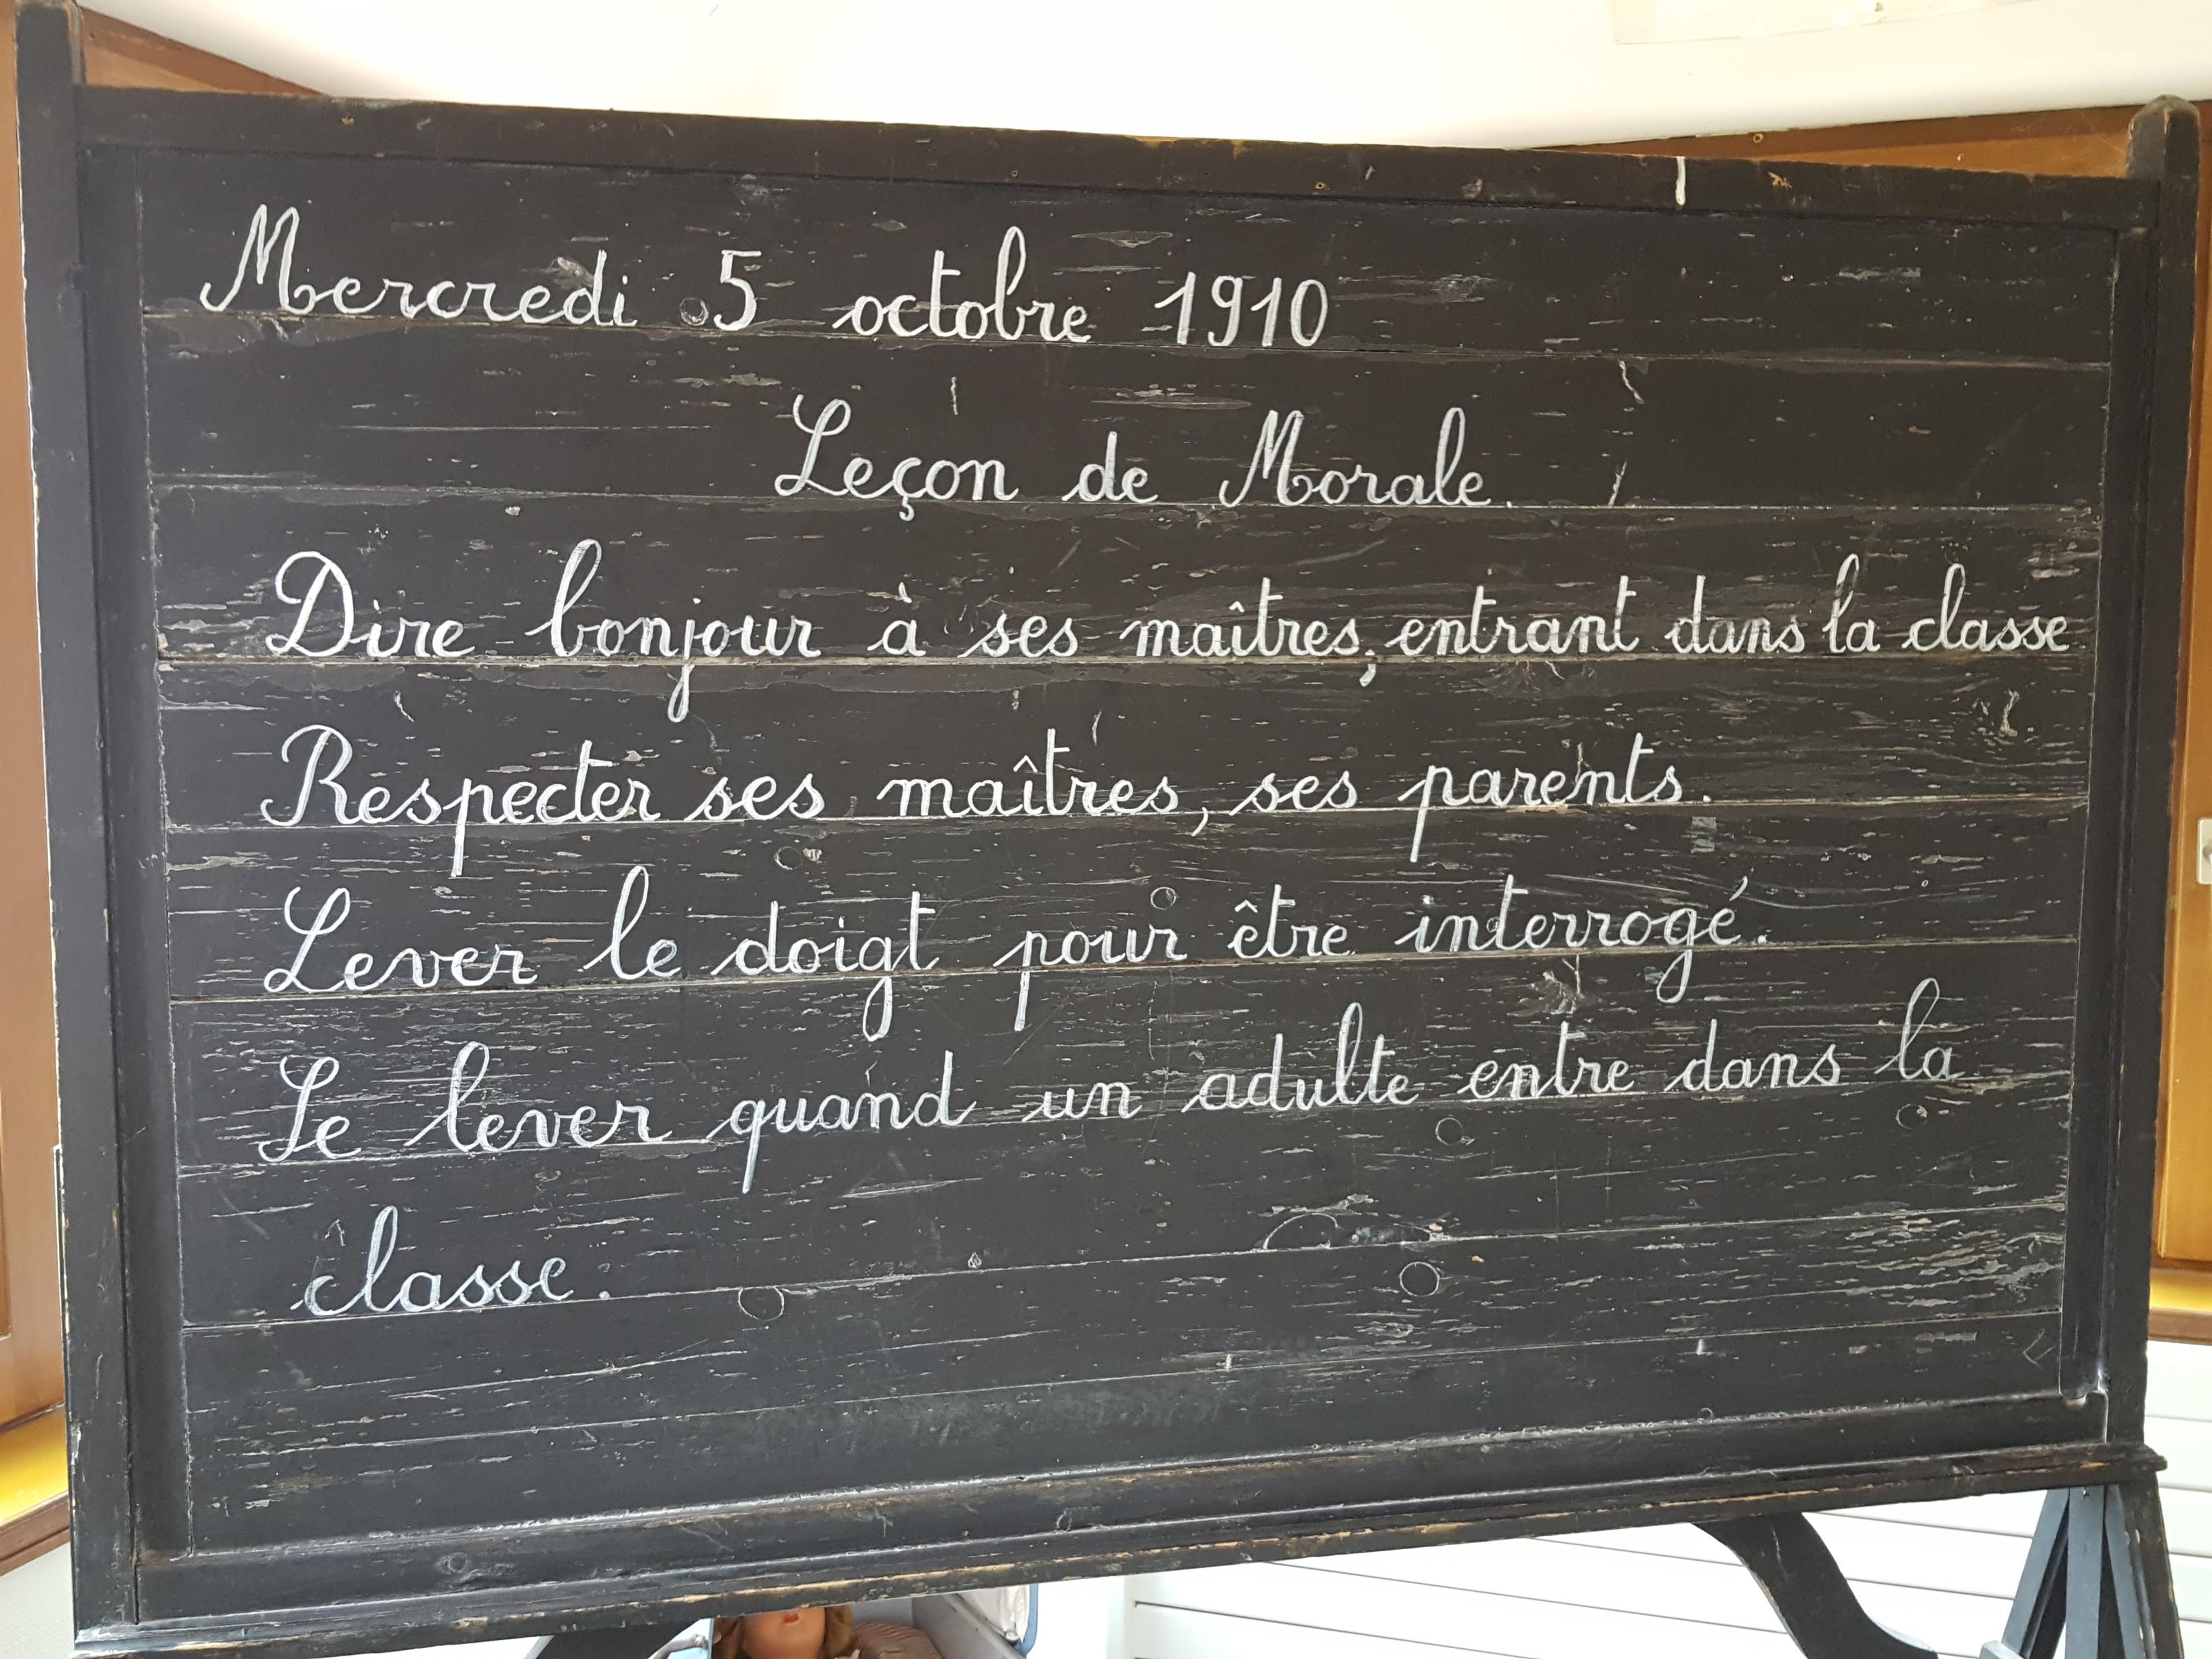 Mercredi 5 octobre 1910
Leçon de Morale.
Dire bonjour à ses maîtres, entrant dans la classe
Respecter ses maîtres, ses parents.
Lever le doigt pour être interrogé.
Se lever quand un adulte entre dans la
classe.